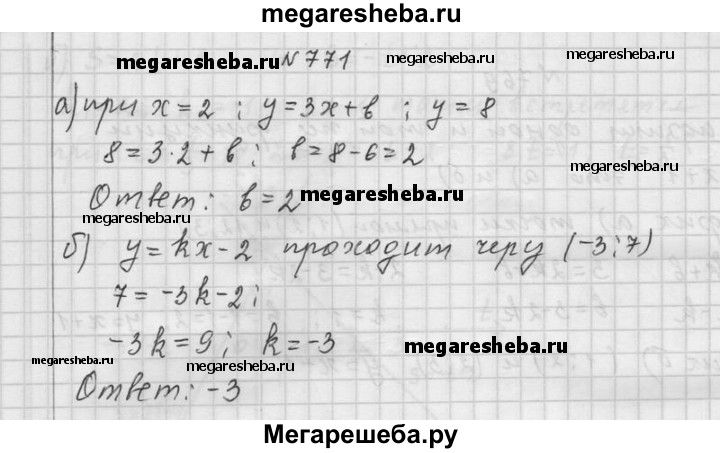 megaresheba.ru
megaresheba.ru N 771 megaresheba.ru
а) при x = 2 ; y = 3x + b ; y = 8
8 = 3·2 + b ; b = 8 - 6 = 2 megaresheba.ru
Ответ: b = 2 megaresheba.ru
megaresheba.ru
б) y = kx - 2 проходит черу (-3; 7)
7 = -3k - 2 ;
-3k = 9 ; k = -3 megaresheba.ru
megaresheba.ru megaresheba.ru
Ответ: -3
Мегарешеба.ру